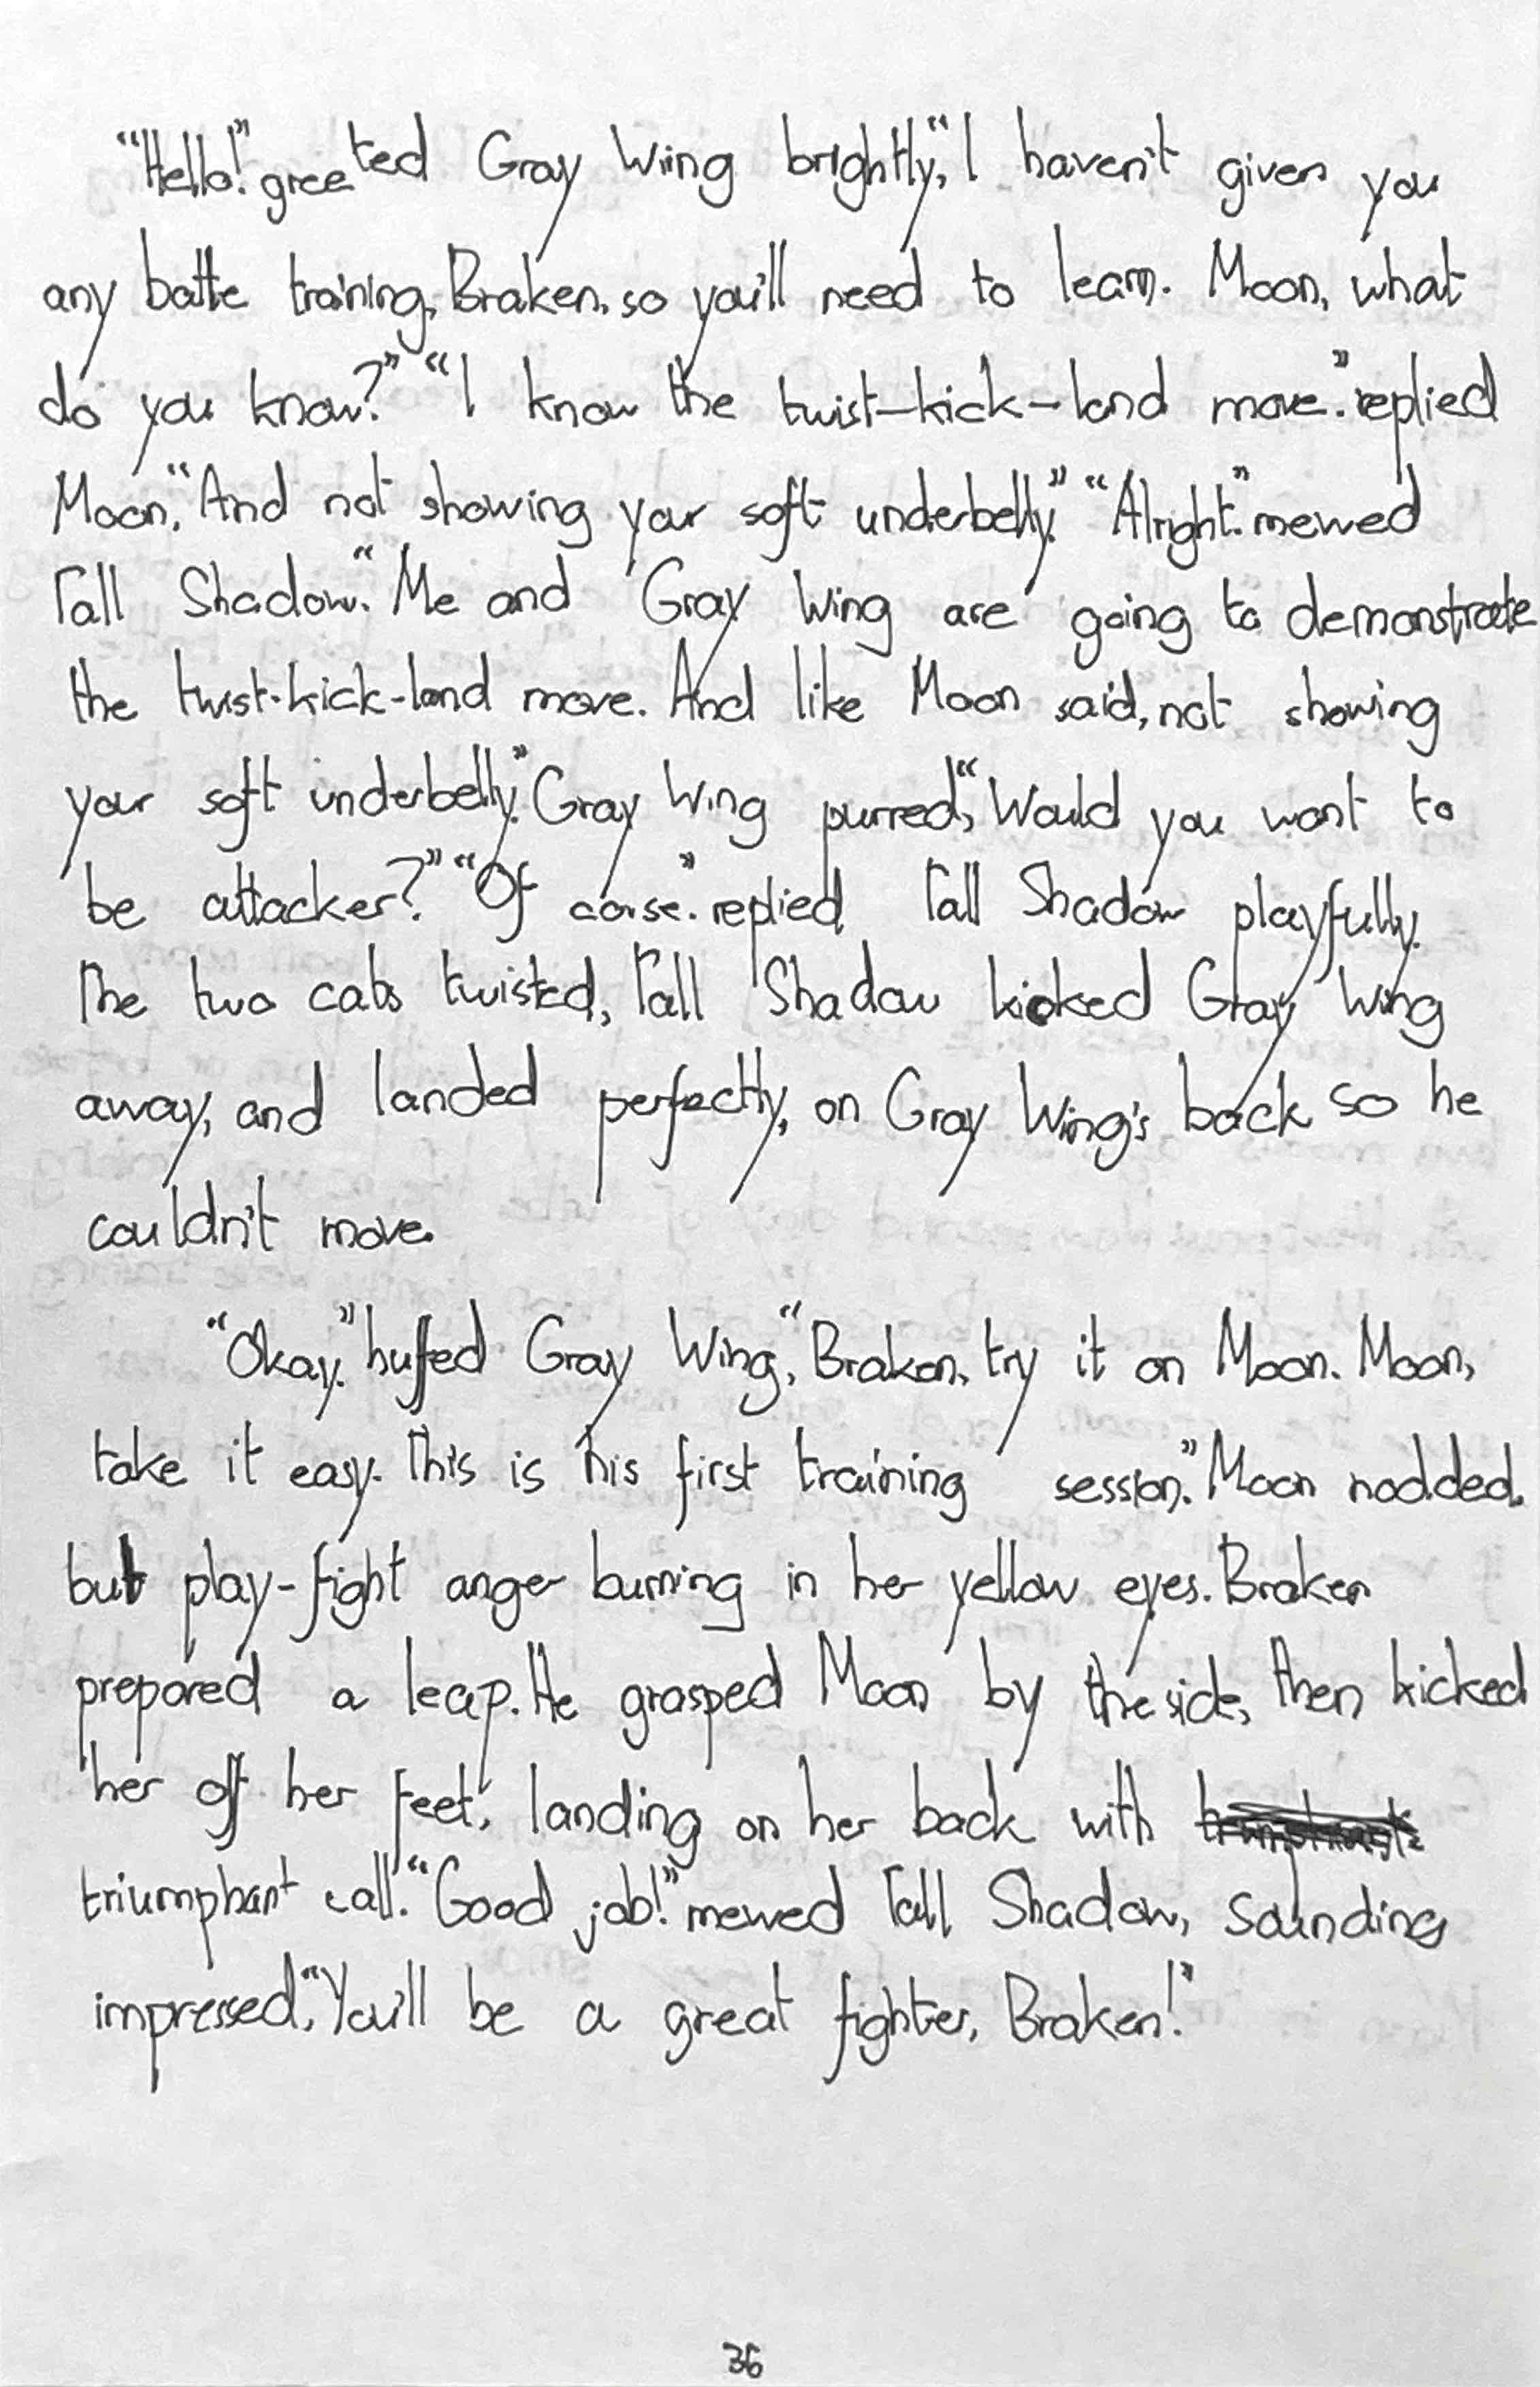 "Hello!" greeted Gray Wing brightly, "I haven't given you
any battle training, Braken, so you'll need to learn. Moon, what
do you know?" "I know the twist-kick-land move." replied
Moon, "And not showing your soft underbelly." "Alright." mewed
Tall Shadow. "Me and Gray Wing are going to demonstrate
the twist-kick-land move. And like Moon said, not showing
your soft underbelly." Gray Wing purred, "Would you want to
be attacker?" "Of corse." replied Tall Shadow playfully.
The two cats twisted, Tall Shadow kicked Gray Wing
away, and landed perfectly, on Gray Wing's back so he
couldn't move.
"Okay." huffed Gray Wing, "Braken, try it on Moon. Moon,
take it easy. This is his first training session." Moon nodded.
but play-fight anger burning in her yellow eyes. Braken
prepared a leap. He grasped Moon by the side, then kicked
her off her feet, landing on her back with
triumphant call. "Good job!" mewed Tall Shadow, sounding
impressed, "You'll be a great fighter, Braken!"
36